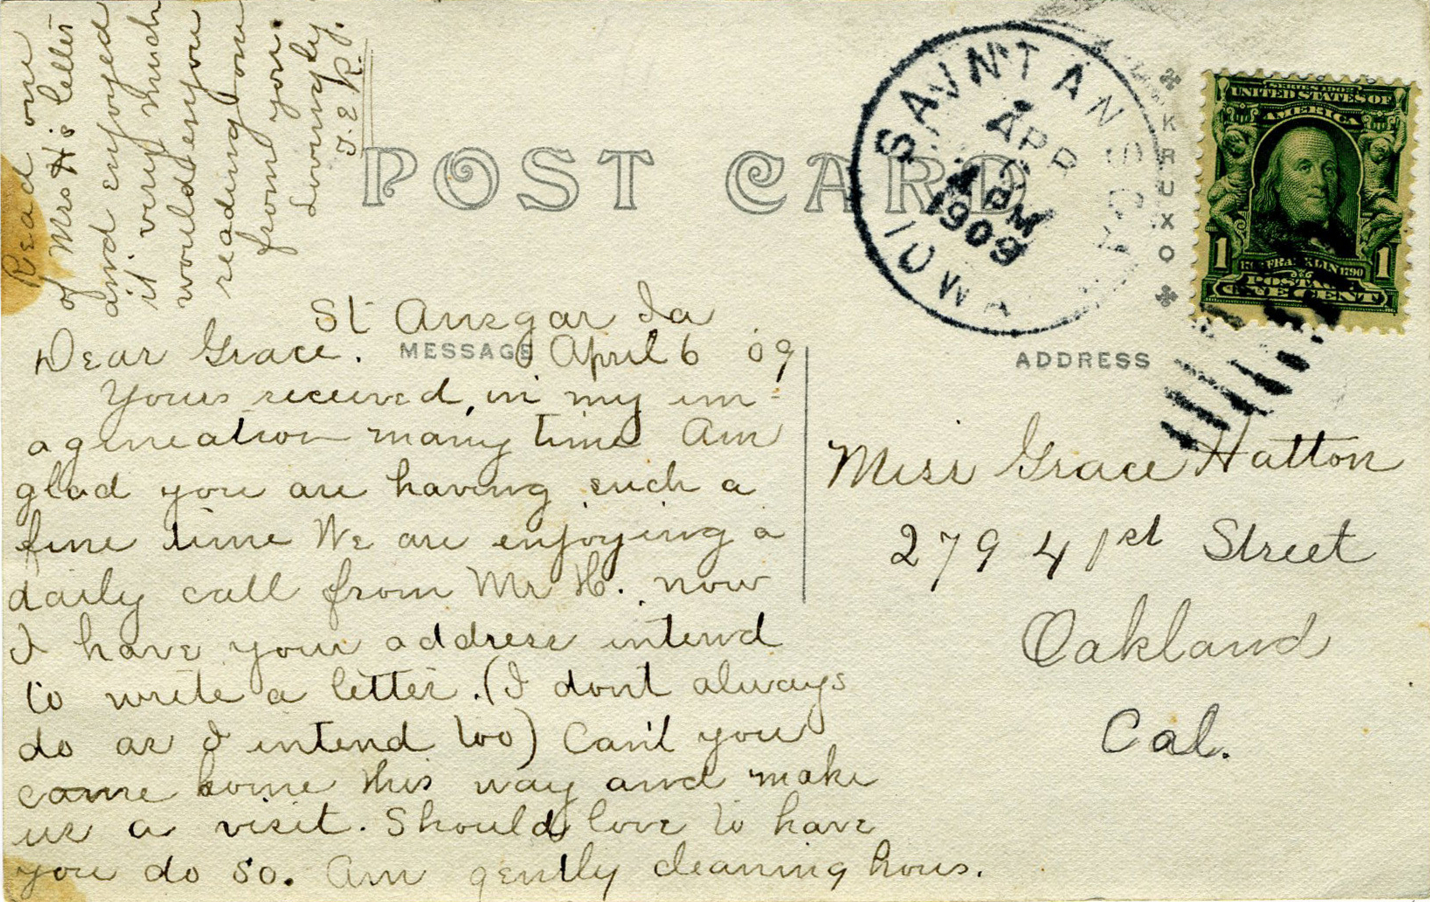 POST CARD
St Ansgar Ia
Dear Grace. April 6 09
MESSAGE
Yours received, in my im-
agineation many time Am
glad you are having such a
fine time We are enjoying a
daily call from Mr H. now
I have your address intend
to write a letter. (I dont always
do as I intend too) Can't you
come home this way and make
us a visit. Should love to have
you do so. Am gently cleaning hous.
Read one
of Mrs H's letter
and enjoyed
it very much
would enjoy
reading one
from you.
Lovingly
J. E. R.
SAVN'T AN
APR
PM
1909
IOWA
KRUXO
SERIES 1902
UNITED STATES OF
AMERICA
1 1
FRANKLIN 1790
POSTAGE
ONE CENT
ADDRESS
Miss Grace Hatton
279 41st Street
Oakland
Cal.